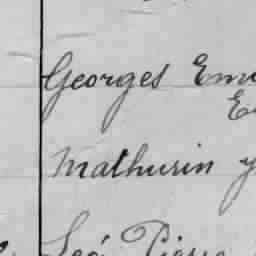 Georges Em
E
Mathurin y
Léo Pierre